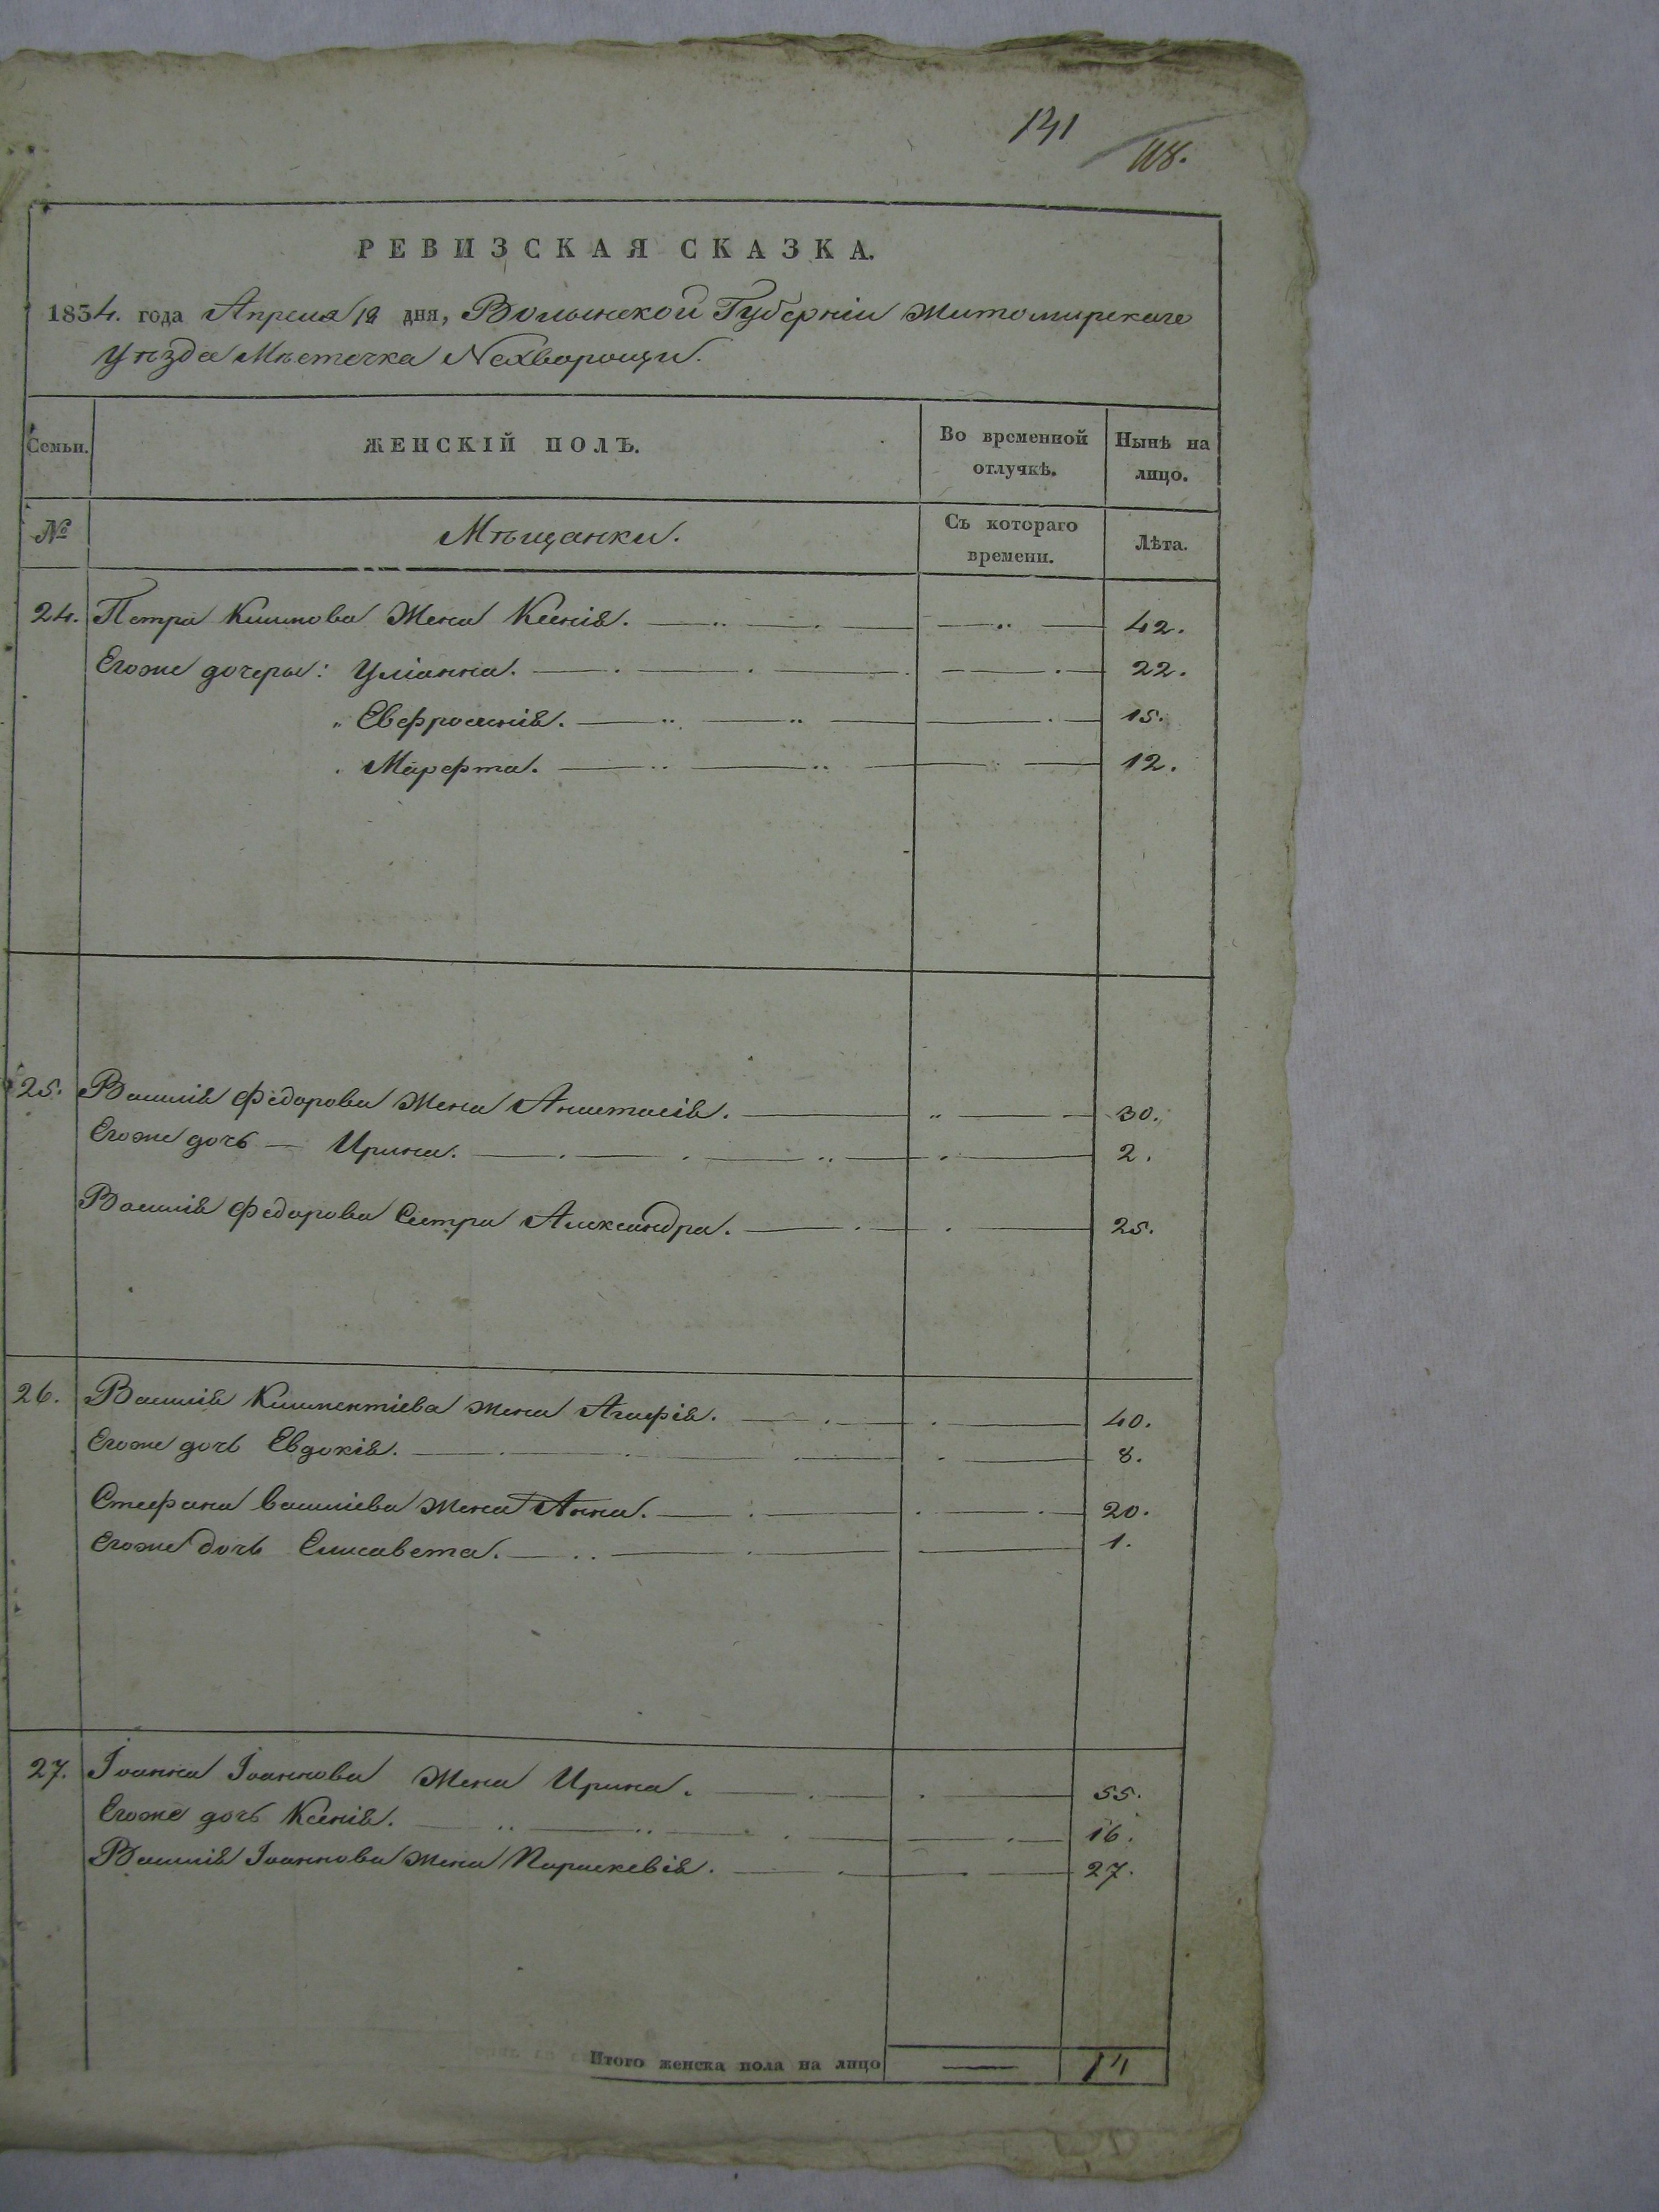 141
118.
РЕВИЗСКАЯ СКАЗКА.
1834. года Апреля 18 дня, Волынской Губерніи Житомирскаго
Уѣзда Мѣстечка Нехворощи.
Семьи.
ЖЕНСКІЙ ПОЛЪ.
Во временной отлучкѣ.
Нынѣ на лицо.
№
Мѣщанки.
Съ котораго времени.
Лѣта.
24. Петра Климова Жена Ксенія. 42.
Егоже дочеры: Уліанна. 22.
" Евфросинія. 15.
Марфта. 12.
25. Василія Федорова Жена Анастасія. 30.
Егоже дочь — Ирина. 2.
Василія Федорова Сестра Александра. 25.
26. Василія Климентіева жена Агафія. 40.
Егоже дочь Евдокія. 8.
Стефана Василіева Жена Анна. 20.
Егоже дочь Елисавета. 1.
27. Іоанна Іоаннова Жена Ирина. 55.
Егоже дочь Ксенія. 16.
Василія Іоаннова Жена Параскевія. 27.
Итого женска пола на лицо — 14